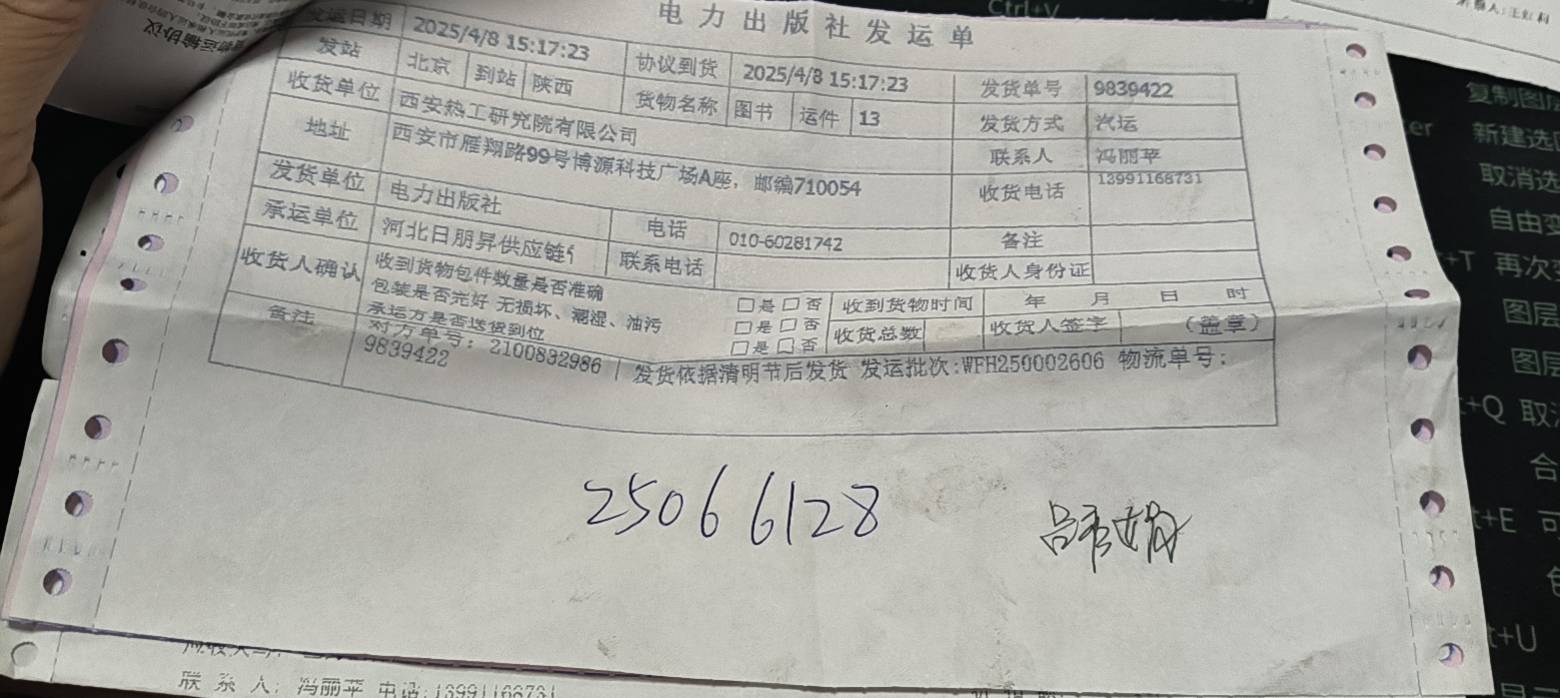 电力出版社发运单
发运日期 2025/4/8 15:17:23 协议到货 2025/4/8 15:17:23 发货单号 9839422
发站 北京 到站 陕西 货物名称 图书 运件 13 发货方式 汽运
收货单位 西安热工研究院有限公司 联系人 冯丽苹
地址 西安市雁翔路99号博源科技广场A座，邮编710054 收货电话 13991168731
发货单位 电力出版社 电话 010-60281742 备注
承运单位 河北日朋昇供应链 联系电话 收货人身份证
收货人确认 收到货物包件数量是否准确 □是□否 收到货物时间 年 月 日 时
包装是否完好 无损坏、潮湿、油污 □是□否 收货总数 收货人签字 （盖章）
承运方是否送货到位 □是□否
备注 对方单号：2100832986 | 发货依据清明节后发货 发运批次:WFH250002606 物流单号:
9839422
25066128
吕秀娟
联系人：冯丽苹 电话:13991168731
运输协议
Ctrl+V
复制图层
新建选
取消选
自由变
+T 再次变
图层
图层
+Q 取消
合
t+E 可
t+U